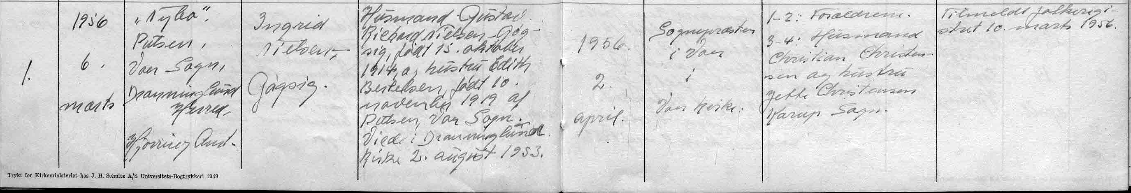 1.
1956
6.
marts
"Nybo".
Pulsen,
Voer Sogn,
Dronninglund
Herred,
Hjørring Amt.
Ingrid
Nielsen,
Gøgsig.
Husmand Gustav
Richard Nielsen Gøg-
sig, født 15. oktober
1914 og hustru Edith
Bertelsen, født 10.
november 1919 af
Pulsen, Voer Sogn.
Viede i Dronninglund
Kirke 2. august 1953.
1956.
2.
april.
Sognepræsten
i Voer
i
Voer Kirke.
1-2: Forældrene.
3-4: Husmand
Christian Christen-
sen og hustru
Christensen
Karup Sogn.
Tilmeldt folkeregi-
stret 10. marts 1956.
Trykt for Kirkeministeriet hos J. H. Schultz A/S Universitets-Bogtrykkeri 1949